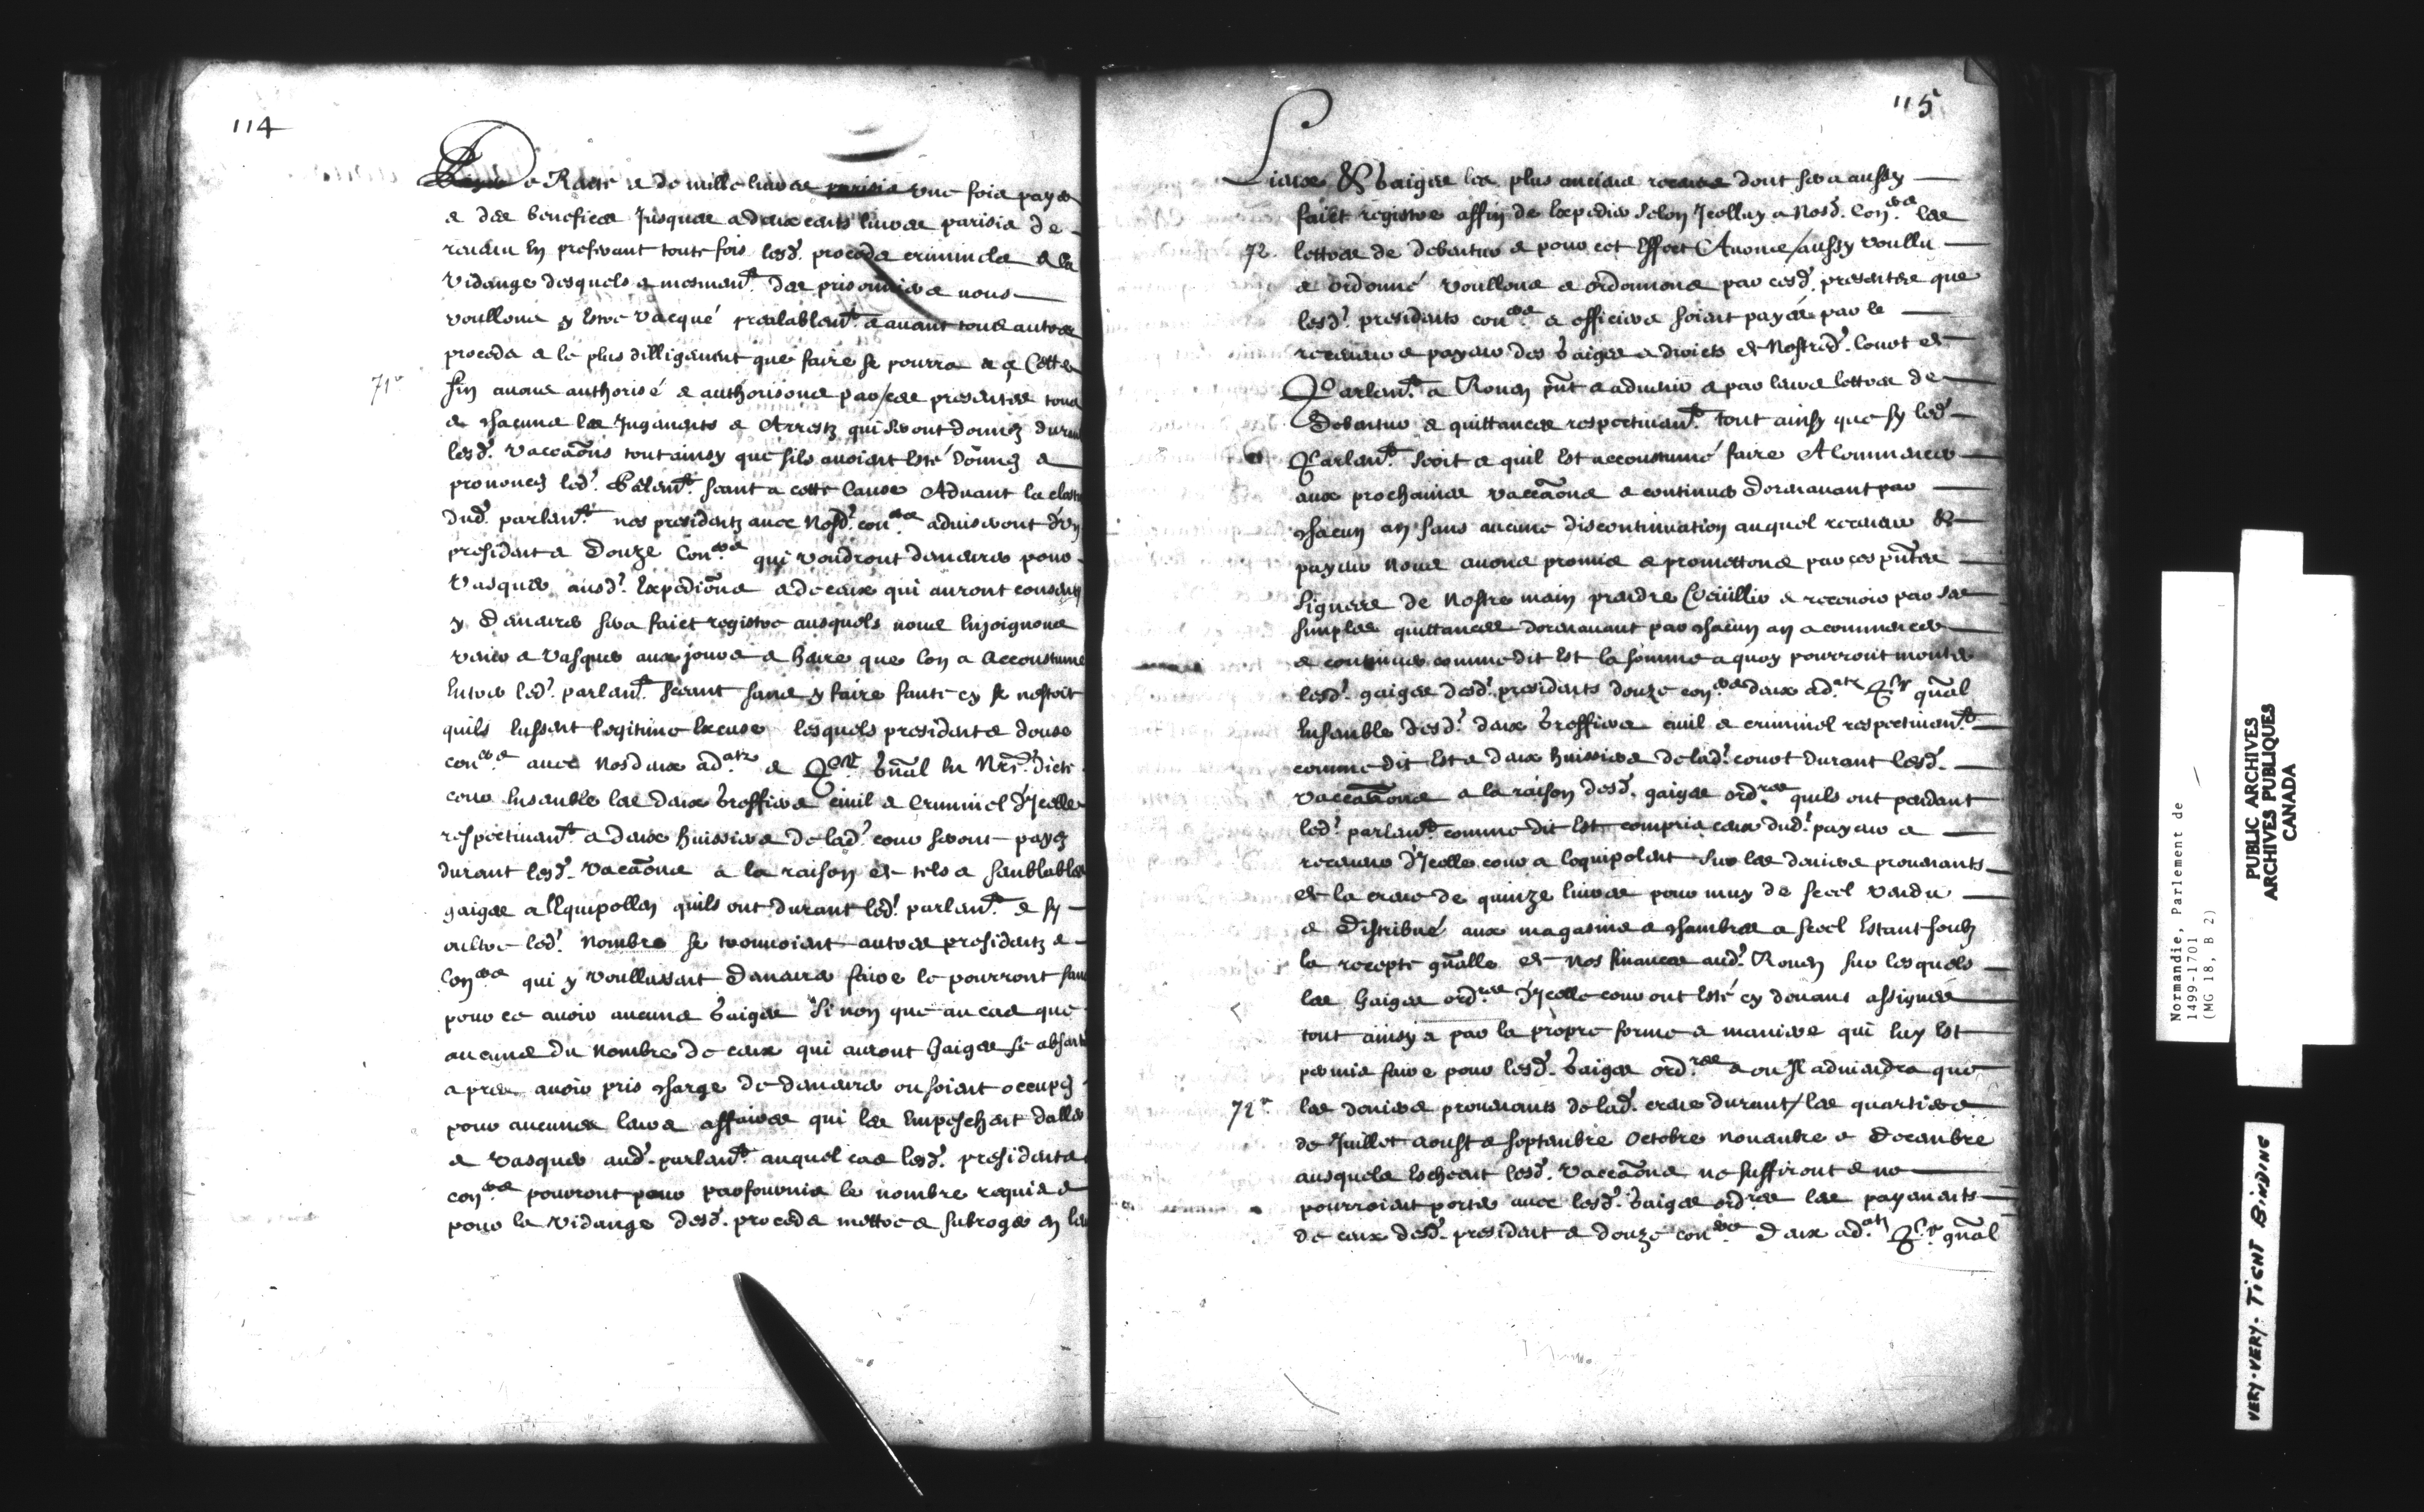 114
De Rente et de mille livres parisis une fois payes
et des benefices Jusques a deux cents livres parisis de
revenu En preferant toutefois lesd. proces criminels et la
vidange desquels et mesmem.t des prisonniers nous
voullons y Estre vacqué prealablem.t et avant tous autres
proces et le plus dilligament que faire se pourra et a Cette
71v
fin avons authorisé et authorisons par/ces presentes tous
et chacuns les Jugements et Arrestz qui seront donnez durant
lesd. vaccaõns tout ainsy que sils avoient Esté dõnnez et
prononcez led. Parlem.t seant a cette Cause Advant la closture
dud. parlem.t nos presidentz avec Nosd. con.ers adviseront d'un
president et douze Con.ers qui voudront demeurer pour
vasquer ausd. Expediõns et de ceux qui auront consenty
y demeurer sera faict registre ausquels nous Enjoignons
venir et vasquer aux jours et heure que lon a accoustumé
Entrer led. parlem.t seant sans y faire faute cy se nestoit
quils Eussent legitime Excuse lesquels presidents et douse
con.ers avec nos deux ad.atz et P.r gñal En Nrẽd. dicte
cour Ensemble les deux Greffiers civil et Criminel d'Icelle
respectivem.t et deux huissiers de lad. cour seront payez
durant lesd. vacaõns a la raison et tels et semblables
gaiges a llquipollen quils ont durant led. parlem.t et sy
oultre led. nombre se trouvoient autres presidentz et
Con.ers qui y voullussent demeurer faire le pourront sans
pour ce avoir aucuns Gaiges Si non que au cas que
aucuns du nombre de ceux qui auront Gaiges se absente
apres avoir pris charge de demeurer ou soient occupez
pour aucunes leurs affaires qui les Empeschent daller
et vasquer aud. parlem.t auquel cas lesd. presidents et
con.ers pourront pour parfournir le nombre requis et
pour la vidange desd. proces mettre et subroger en leu
115
Lieux & Gaiges les plus anciens receus dont sera aussy
faict registre affin de Expedier selon Icelluy a Nosd. Con.ers les
72. lettres de debentur et pour cet Effect Avons/aussy voullu
et ordonné voullons et ordonnons par cesd. presentes que
lesd. presidents con.ers et officiers soient payés par le
receveur et payeur des Gaiges et droicts de Nostred. Court de
Parlem.t a Rouen pñt et advenir et par leurs lettres de
Debentur et quittances respectivem.t tout ainsy que sy led.
Parlem.t seoit et quil Est accoustumé faire A Commencer
aux prochaines vaccaõns et continuer dorenavant par
chacun an sans aucune discontinuation auquel receveur &
payeur nous avons promis et promettons par ces pñtes
signees de Nostre main prendre Cueillir et recevoir par ses
simples quittances dorenavant par chacun an a commencer
et continuer comme dit Est la somme a quoy pourront monter
lesd. gaiges desd. presidents douze con.ers deux ad.atz P.r gñal
Ensemble desd. deux Greffiers civil et criminel respectivem.t
comme dit Est et deux huissiers de lad. court durant lesd.
vaccaõns a la raison desd. gaiges ord.res quils ont pendant
led. parlem.t comme dit Est compris ceux dud. payeur et
receveur d'Icelle cour a lequipolent sur les deniers provenants
de la creue de quinze livres pour muy de seel vendu
et distribué aux magasins et chambres a seel Estant soubz
la recepte gñalle de nos finances aud. Rouen sur lesquels
les Gaiges ord.res d'Icelle cour ont Esté cy devant assignés
tout ainsy et par la propre forme et maniere qui luy Est
permis faire pour lesd. Gaiges ord.res et ou Il adviendra que
72v
les deniers provenants de lad. creue durant/les quartiers
de Juillet aoust et septembre octobre novembre et decembre
ausquels Escheent lesd. vaccaõns ne suffiront et ne
pourroient porter avec lesd. Gaiges ord.res les payements
de ceux desd. president et douze con.ers deux ad.atz P.r gñal
Normandie, Parlement de
1499-1701
(MG 18, B 2)
PUBLIC ARCHIVES
ARCHIVES PUBLIQUES
CANADA
VERY-VERY- TIGHT BINDING